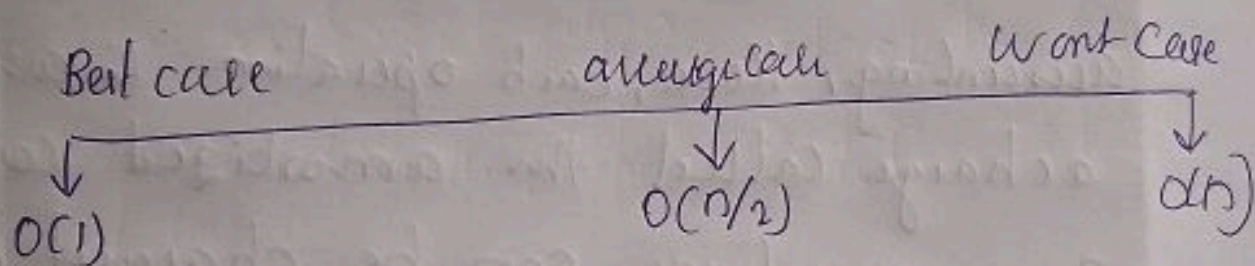 Best case average case Worst Case
O(1) O(n/2) O(n)